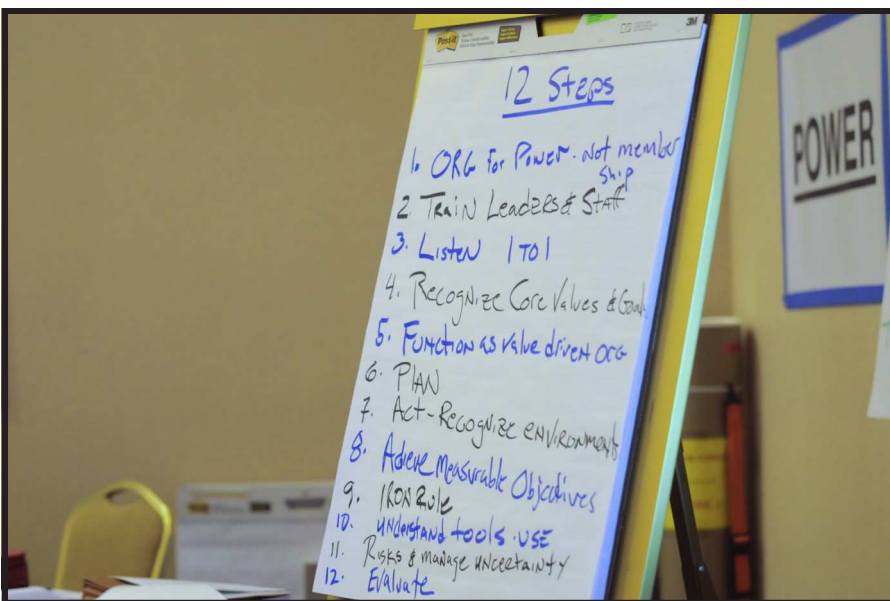 Post-it
3M
12 Steps
1. ORG for Power - Not member
ship
2. Train Leaders & Staff
3. Listen 1 TO 1
4. Recognize Core Values & Goals
5. Function as value driven org
6. PLAN
7. Act - Recognize environments
8. Achieve Measurable Objectives
9. IRON Rule
10. understand tools - USE
11. Risks & manage uncertainty
12. Evaluate
POWER